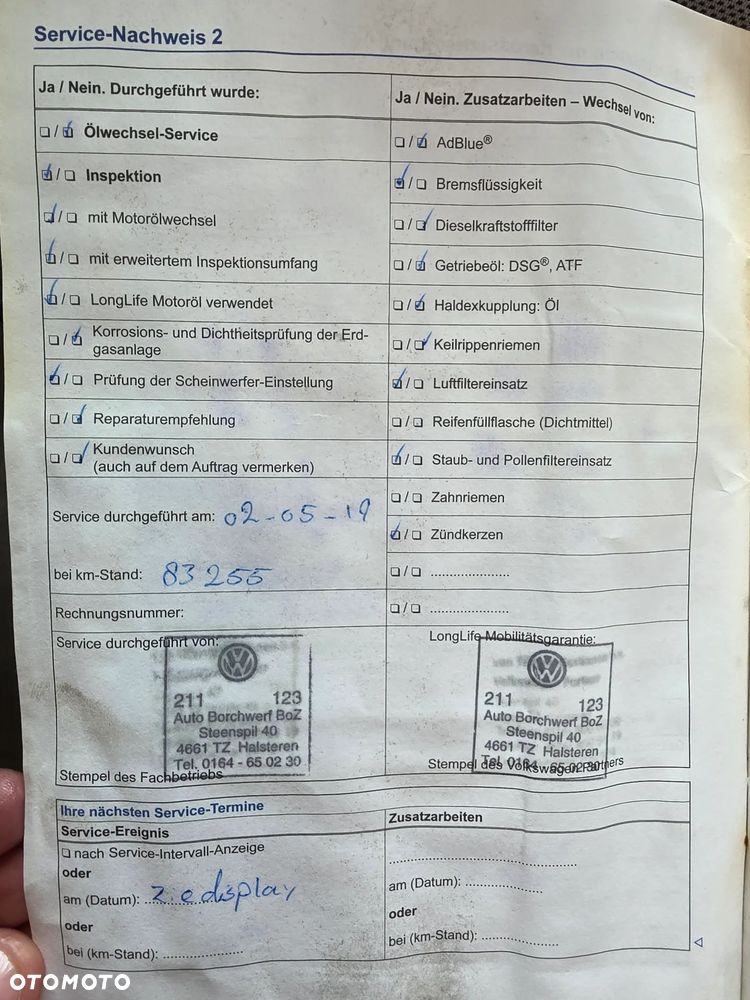 Service-Nachweis 2
Ja / Nein. Durchgeführt wurde:
Ölwechsel-Service
Inspektion
mit Motorölwechsel
mit erweitertem Inspektionsumfang
LongLife Motoröl verwendet
Korrosions- und Dichtheitsprüfung der Erd-
gasanlage
Prüfung der Scheinwerfer-Einstellung
Reparaturempfehlung
Kundenwunsch
(auch auf dem Auftrag vermerken)
Service durchgeführt am: 02-05-19
bei km-Stand: 83255
Rechnungsnummer:
Service durchgeführt von:
211 123
Auto Borchwerf BoZ
Steenspil 40
4661 TZ Halsteren
Tel. 0164 - 65 02 30
Stempel des Fachbetriebs
Ja / Nein. Zusatzarbeiten – Wechsel von:
AdBlue®
Bremsflüssigkeit
Dieselkraftstofffilter
Getriebeöl: DSG®, ATF
Haldexkupplung: Öl
Keilrippenriemen
Luftfiltereinsatz
Reifenfüllflasche (Dichtmittel)
Staub- und Pollenfiltereinsatz
Zahnriemen
Zündkerzen
LongLife Mobilitätsgarantie:
211 123
Auto Borchwerf BoZ
Steenspil 40
4661 TZ Halsteren
Tel. 0164 - 65 02 30
Stempel des Volkswagen Partners
Ihre nächsten Service-Termine
Service-Ereignis
nach Service-Intervall-Anzeige
oder
am (Datum): zie display
oder
bei (km-Stand):
Zusatzarbeiten
am (Datum):
oder
bei (km-Stand):
OTOMOTO